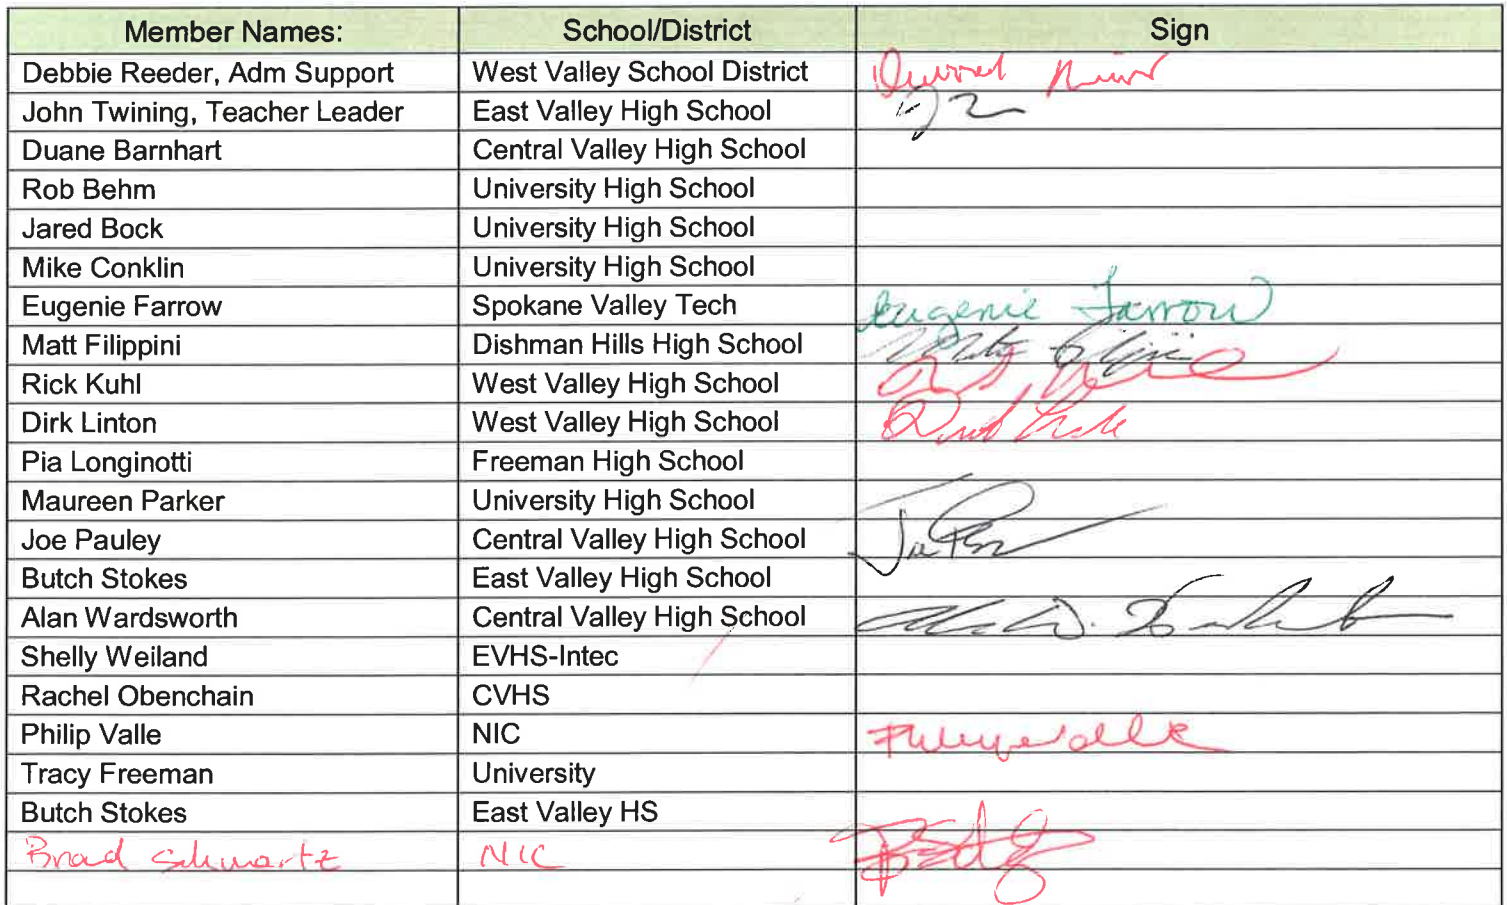 Member Names: School/District Sign
Debbie Reeder, Adm Support West Valley School District
John Twining, Teacher Leader East Valley High School
Duane Barnhart Central Valley High School
Rob Behm University High School
Jared Bock University High School
Mike Conklin University High School
Eugenie Farrow Spokane Valley Tech Eugenie Farrow
Matt Filippini Dishman Hills High School
Rick Kuhl West Valley High School
Dirk Linton West Valley High School
Pia Longinotti Freeman High School
Maureen Parker University High School
Joe Pauley Central Valley High School
Butch Stokes East Valley High School
Alan Wardsworth Central Valley High School
Shelly Weiland EVHS-Intec
Rachel Obenchain CVHS
Philip Valle NIC
Tracy Freeman University
Butch Stokes East Valley HS
Brad Schwartz NIC